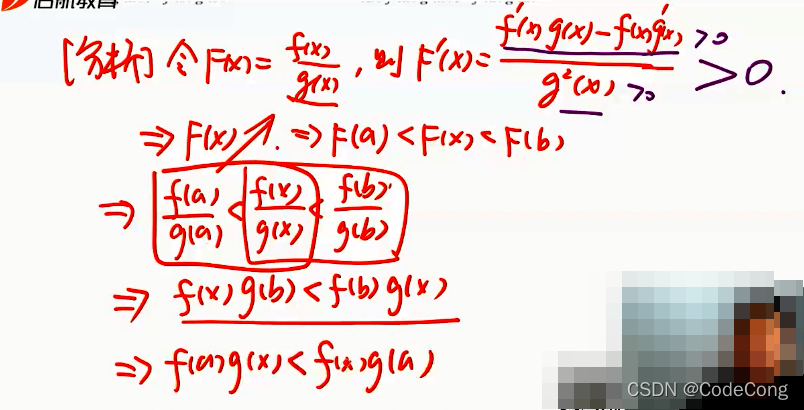 启航教育
[分析] 令 F(x) = f(x)/g(x), 则 F'(x) = (f'(x)g(x) - f(x)g'(x))/g²(x) > 0.
>0
>0
⇒ F(x) ↗. ⇒ F(a) < F(x) < F(b)
⇒ f(a)/g(a) < f(x)/g(x) < f(b)/g(b)
⇒ f(x)g(b) < f(b)g(x)
⇒ f(a)g(x) < f(x)g(a)
CSDN @CodeCong